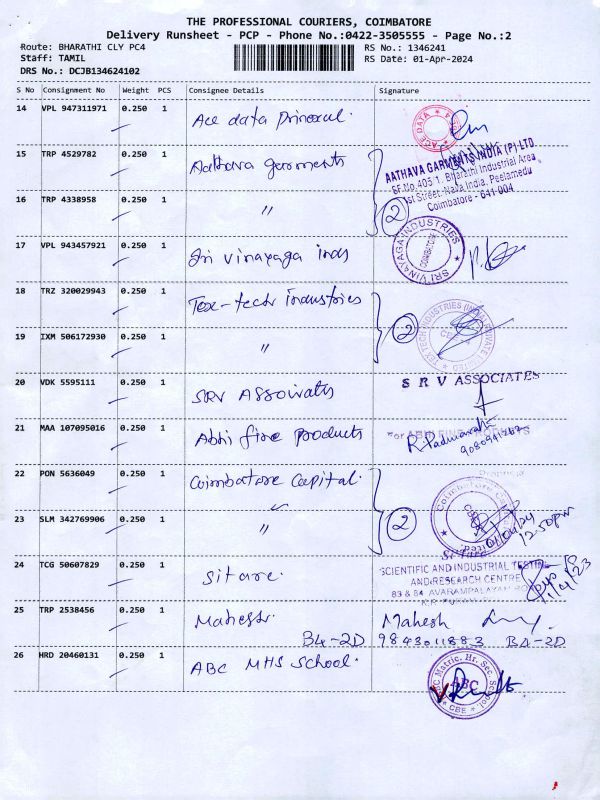 THE PROFESSIONAL COURIERS, COIMBATORE
Delivery Runsheet - PCP - Phone No.:0422-3505555 - Page No.:2
Route: BHARATHI CLY PC4 RS No.: 1346241
Staff: TAMIL RS Date: 01-Apr-2024
DRS No.: DCJB134624102
S No Consignment No Weight PCS Consignee Details Signature
14 VPL 947311971 0.250 1 Ace data
ACE DATA
15 TRP 4529782 0.250 1 Aathava garments
AATHAVA GARMENTS INDIA (P) LTD
SF.No.405 1, Bharathi Industrial Area
1st Street, Nava India, Peelamedu
Coimbatore - 641 004
16 TRP 4338958 0.250 1 " 2
17 VPL 943457921 0.250 1 Sri Vinayaga inds
SRI VINAYAGA INDUSTRIES
COIMBATORE
18 TRZ 320029943 0.250 1 Tex-tech industries
TEX TECH INDUSTRIES (INDIA) PRIVATE LIMITED
19 IXM 506172930 0.250 1 " 2
20 VDK 5595111 0.250 1 SRV Associates
S R V ASSOCIATES
21 MAA 107095016 0.250 1 Abhi fire products
For ABHI FIRE PRODUCTS
R. Padmavathi
22 PON 5636049 0.250 1 Coimbatore Capital.
Coimbatore
23 SLM 342769906 0.250 1 " 2
01/04/24
12.50pm
24 TCG 50607829 0.250 1 Sitarc.
SCIENTIFIC AND INDUSTRIAL TESTING
AND RESEARCH CENTRE
83 & 84 AVARAMPALAYAM ROAD
25 TRP 2538456 0.250 1 Mahesh Mahesh
B4-2D 9843011883 B4-2D
26 HRD 20460131 0.250 1 ABC MHS School.
ABC Matric. Hr. Sec. School
ABC
CBE